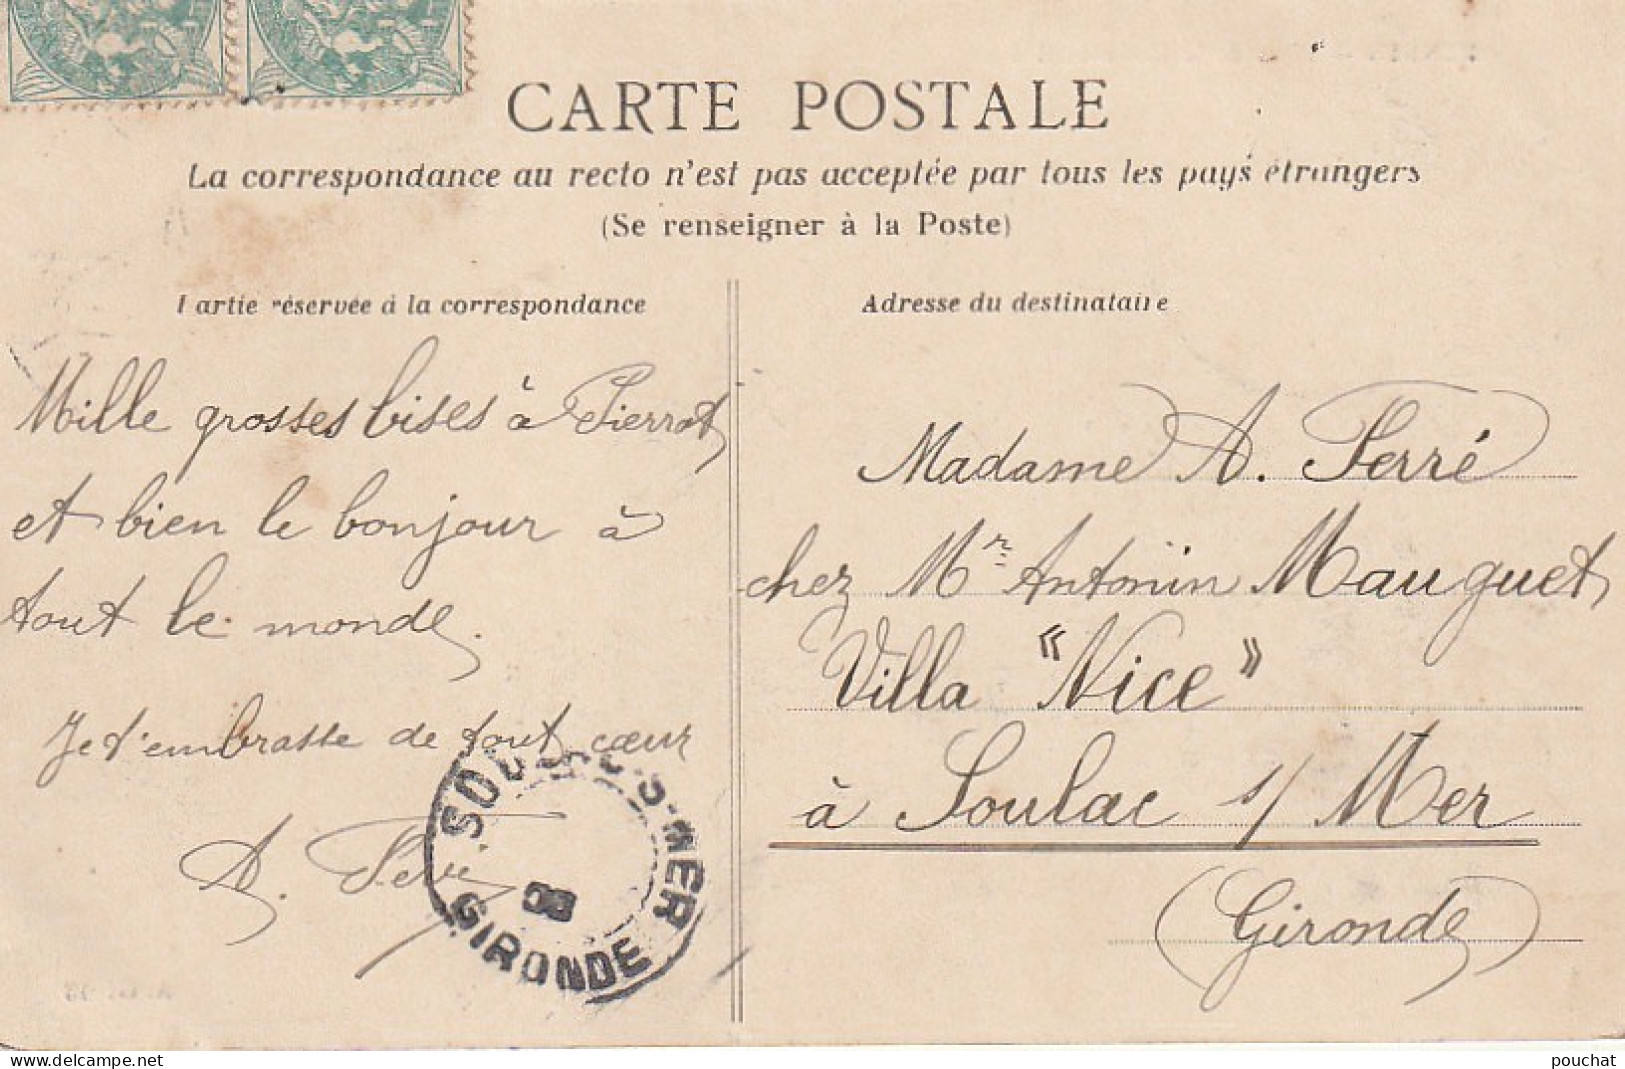 CARTE POSTALE
La correspondance au recto n'est pas acceptée par tous les pays étrangers
(Se renseigner à la Poste)
Partie réservée à la correspondance
Mille grosses bises à Pierrot
et bien le bonjour à
tout le monde.
Je t'embrasse de tout cœur
A.
SOULAC-S-MER
GIRONDE
Adresse du destinataire
Madame A. Ferré
chez Mr Antonin Mauguet
Villa "Nice"
à Soulac s/ Mer
(Gironde)
www.delcampe.net
pouchat